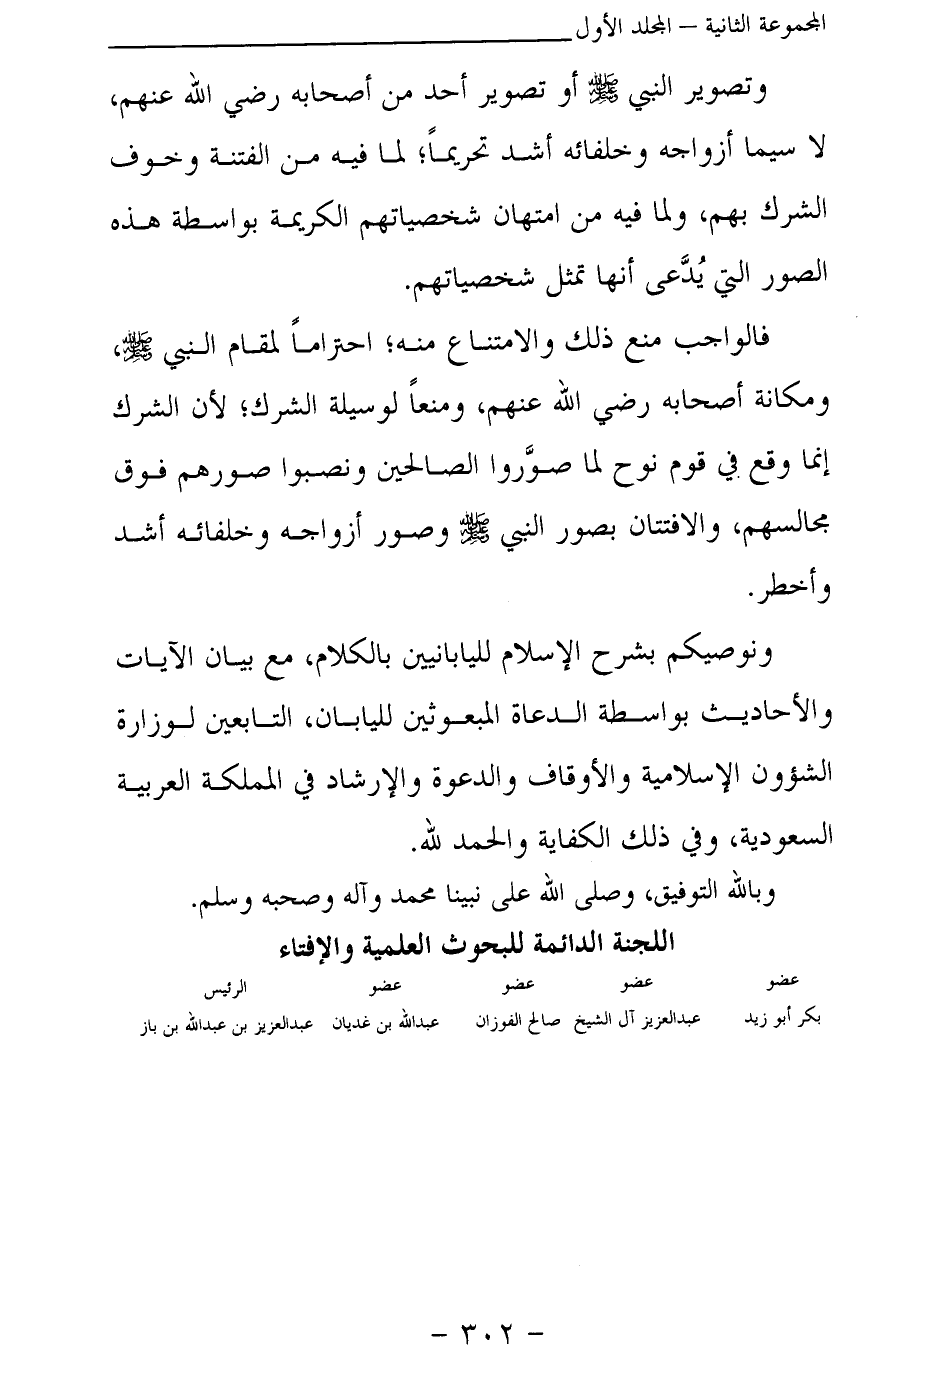 المجموعة الثانية – المجلد الأول
وتصوير النبي ﷺ أو تصوير أحد من أصحابه رضي الله عنهم،
لا سيما أزواجه وخلفائه أشد تحريماً؛ لما فيه من الفتنة وخوف
الشرك بهم، ولما فيه من امتهان شخصياتهم الكريمة بواسطة هذه
الصور التي يُدَّعى أنها تمثل شخصياتهم.
فالواجب منع ذلك والامتناع منه؛ احتراماً لمقام النبي ﷺ،
ومكانة أصحابه رضي الله عنهم، ومنعاً لوسيلة الشرك؛ لأن الشرك
إنما وقع في قوم نوح لما صوَّروا الصالحين ونصبوا صورهم فوق
مجالسهم، والافتتان بصور النبي ﷺ وصور أزواجه وخلفائه أشد
وأخطر.
ونوصيكم بشرح الإسلام لليابانيين بالكلام، مع بيان الآيات
والأحاديث بواسطة الدعاة المبعوثين لليابان، التابعين لوزارة
الشؤون الإسلامية والأوقاف والدعوة والإرشاد في المملكة العربية
السعودية، وفي ذلك الكفاية والحمد لله.
وبالله التوفيق، وصلى الله على نبينا محمد وآله وصحبه وسلم.
اللجنة الدائمة للبحوث العلمية والإفتاء
عضو عضو عضو عضو الرئيس
بكر أبو زيد عبدالعزيز آل الشيخ صالح الفوزان عبدالله بن غديان عبدالعزيز بن عبدالله بن باز
– ٣٠٢ –